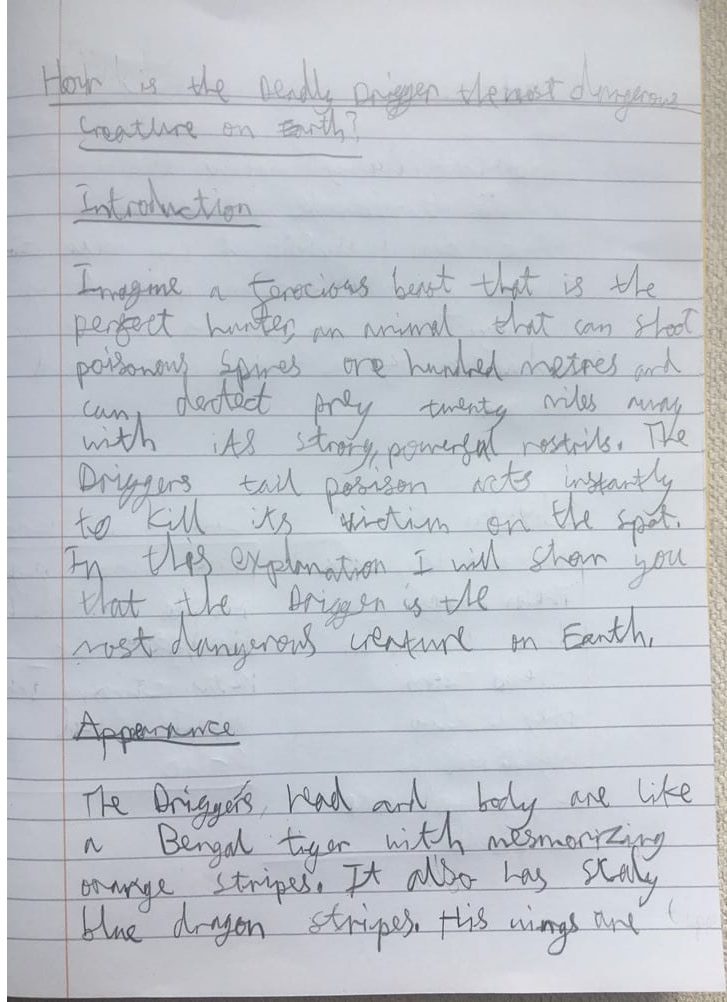 How is the Deadly Drigger the most dangerous
Creature on Earth?
Introduction
Imagine a ferocious beast that is the
perfect hunter, an animal that can shoot
poisonous spines one hundred metres and
can dectect prey twenty miles away
with its strong, powerful nostrils. The
Driggers tail posison acts instantly
to kill its victim on the spot.
In this explanation I will show you
that the Drigger is the
most dangerous creature on Earth.
Appearance
The Driggers head and body are like
a Bengal tiger with mesmorizing
orange stripes. It also has scaly
blue dragon stripes. His wings are